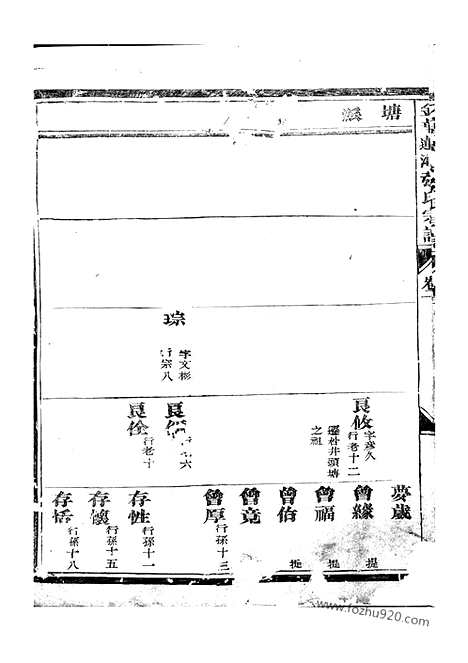 塘派
宗譜
卷一
琮
字文彬
行宗八
良攸
字彥久
行老十二
遷杜井頭塘
之祖
良
六
良佺
行老十
夢歲
曾緣
提
曾福
提
曾伯
提
曾竟
曾厚
行孫十三
存性
行孫十一
存讓
行孫十五
存恬
行孫十八
www.fozhu920.com